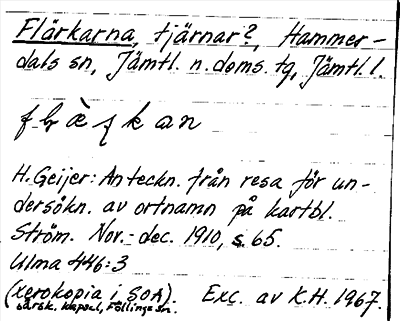 Flärkarna, tjärnar?, Hammer-
dals sn, Jämtl. n. doms. tg, Jämtl. l.
H. Geijer: Anteckn. från resa för un-
dersökn. av ortnamn på kartbl.
Ström. Nov.-dec. 1910, s. 65.
Ulma 446:3
(Xerokopia i SOA). Exc. av K.H. 1967.
särsk. kapsel, Föllinge sn.